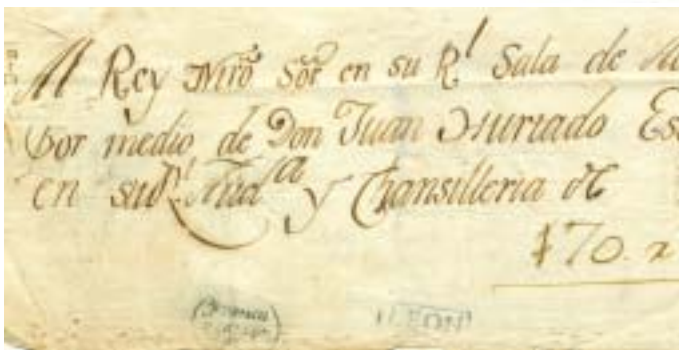 Al Rey Nrō Sōr en su Rˡ Sala de
por medio de Don Juan Hurtado Es
en su Rˡ Audᵃ y Chansilleria de
70.
LEON